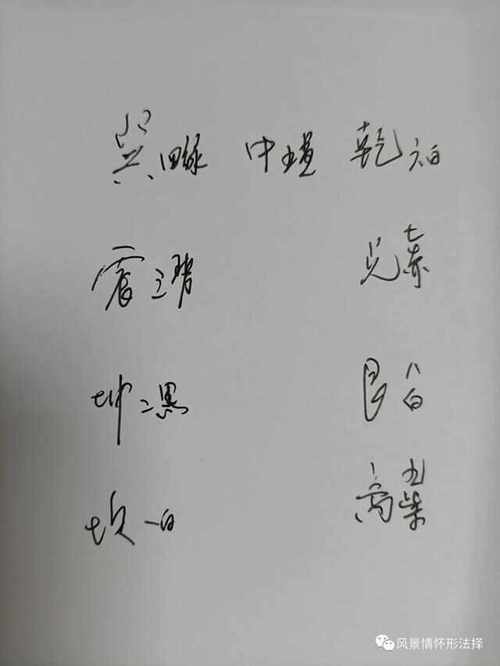 巽四绿 中五黄 乾六白
震三碧 兑七赤
坤二黑 艮八白
坎一白 离九紫
风景情怀形法择